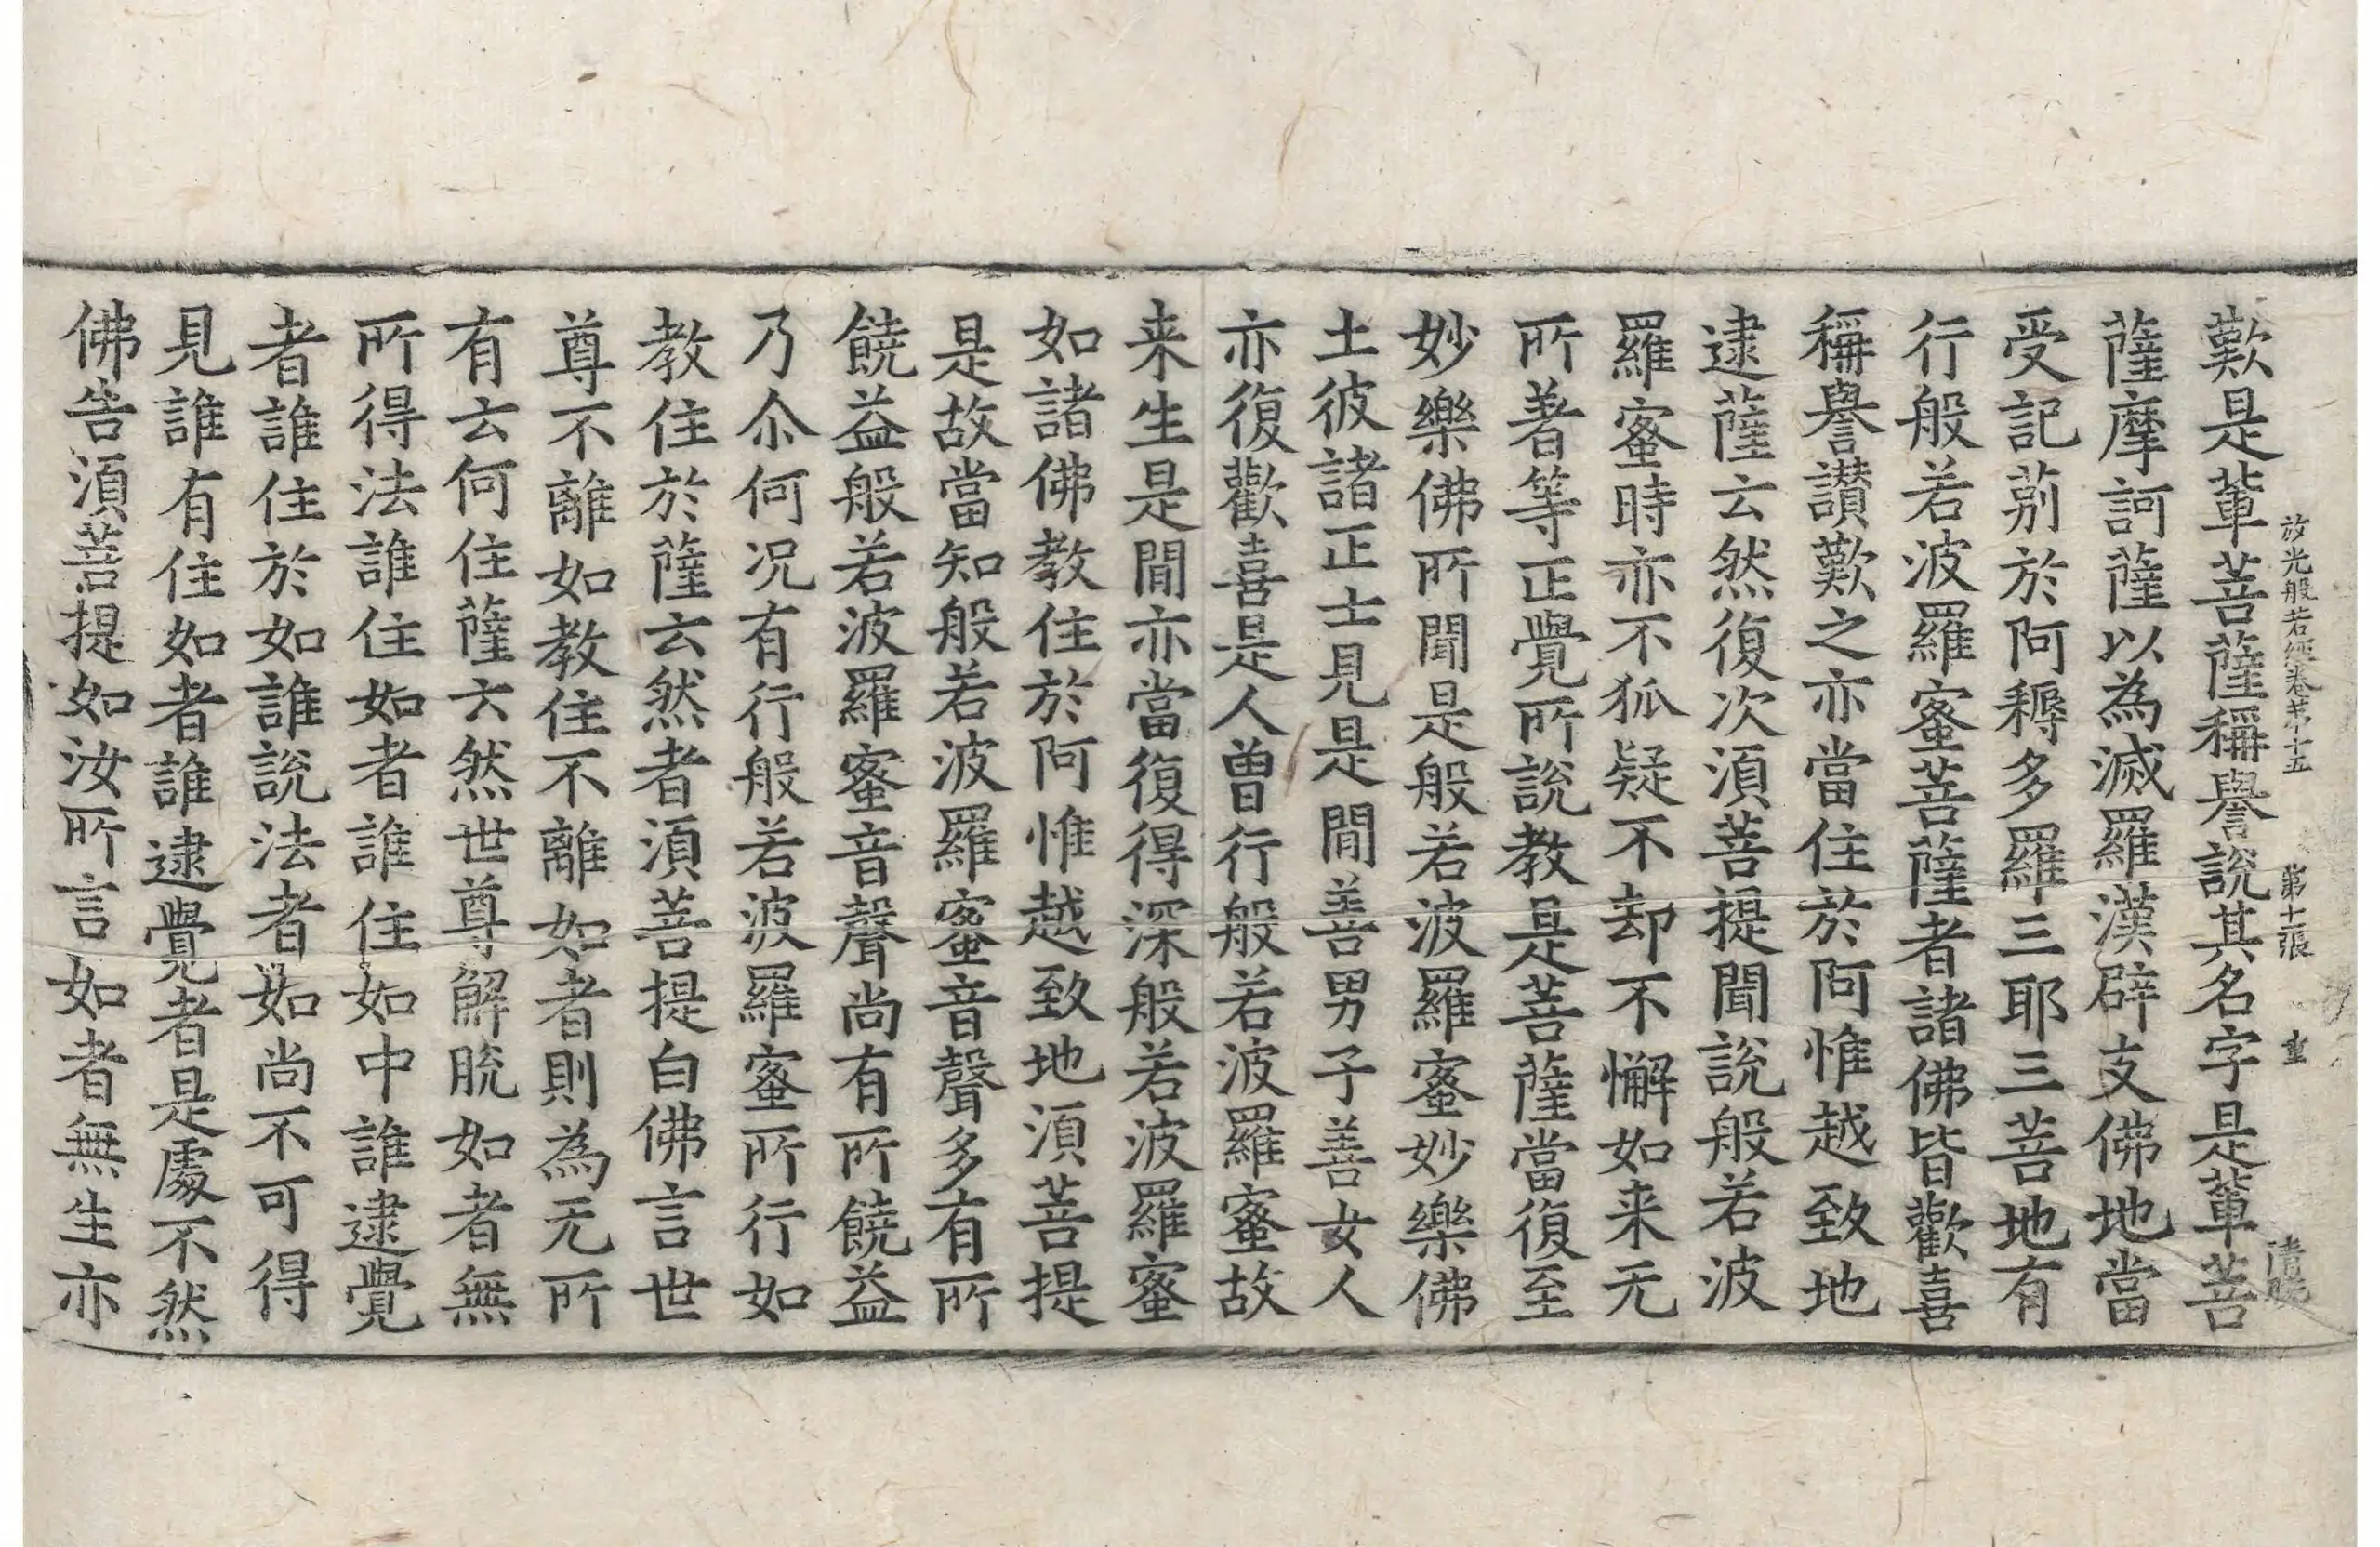 放光般若經卷第十五 第十二張 重
歎是輩菩薩稱譽說其名字是輩菩
薩摩訶薩以為滅羅漢辟支佛地當
受記莂於阿耨多羅三耶三菩地有
行般若波羅蜜菩薩者諸佛皆歡喜
稱譽讃歎之亦當住於阿惟越致地
逮薩云然復次湏菩提聞說般若波
羅蜜時亦不狐疑不却不懈如来无
所著等正覺所說教是菩薩當復至
妙樂佛所聞是般若波羅蜜妙樂佛
土彼諸正士見是閒善男子善女人
亦復歡喜是人曾行般若波羅蜜故
来生是閒亦當復得深般若波羅蜜
如諸佛教住於阿惟越致地湏菩提
是故當知般若波羅蜜音聲多有所
饒益般若波羅蜜音聲尚有所饒益
乃尒何况有行般若波羅蜜所行如
教住於薩云然者湏菩提白佛言世
尊不離如教住不離如者則為无所
有云何住薩云然世尊解脫如者無
所得法誰住如者誰住如中誰逮覺
者誰住於如誰說法者如尚不可得
見誰有住如者誰逮覺者是處不然
佛告湏菩提如汝所言如者無生亦